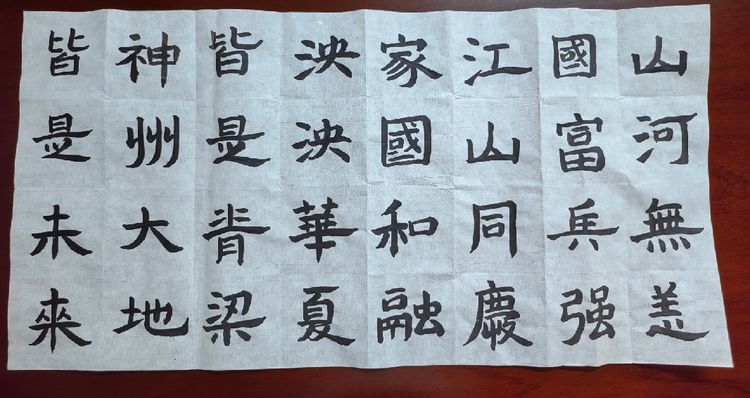 山河無恙
國富兵强
江山同慶
家國和融
泱泱華夏
皆是脊梁
神州大地
皆是未来